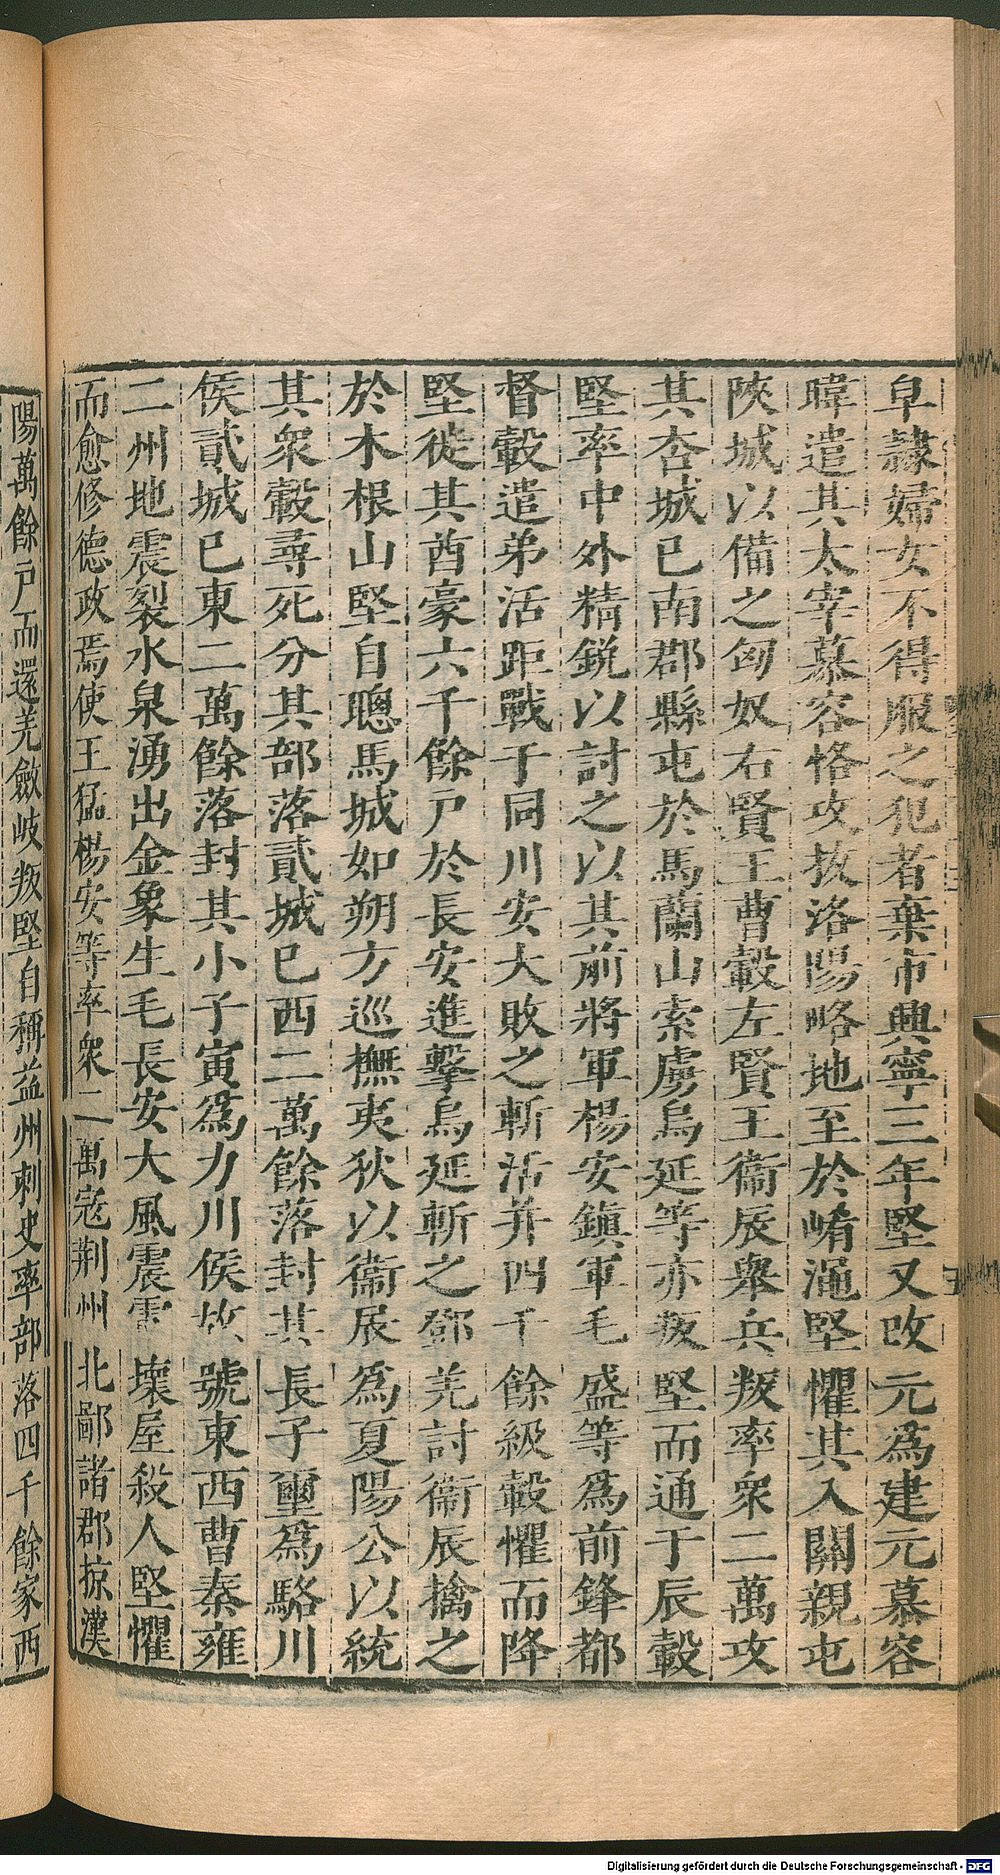 皁隸婦女不得服之犯者棄市興寧三年堅又改元爲建元慕容
暐遣其太宰慕容恪攻拔洛陽略地至於崤澠堅懼其入關親屯
陝城以備之匈奴右賢王曹轂左賢王衞辰舉兵叛率衆二萬攻
其杏城已南郡縣屯於馬蘭山索虜烏延等亦叛堅而通于辰轂
堅率中外精鋭以討之以其前將軍楊安鎭軍毛盛等爲前鋒都
督轂遣弟活距戰于同川安大敗之斬活并四千餘級轂懼而降
堅徙其酋豪六千餘戸於長安進擊烏延斬之鄧羌討衞辰擒之
於木根山堅自驄馬城如朔方巡撫夷狄以衞辰爲夏陽公以統
其衆轂尋死分其部落貳城已西二萬餘落封其長子璽爲駱川
侯貳城已東二萬餘落封其小子寅爲力川侯故號東西曹秦雍
二州地震裂水泉湧出金象生毛長安大風震電壞屋殺人堅懼
而愈修德政焉使王猛楊安等率衆二萬寇荆州北鄙諸郡掠漢
陽萬餘戸而還羌斂岐叛堅自稱益州刺史率部落四千餘家西
Digitalisierung gefördert durch die Deutsche Forschungsgemeinschaft - DFG